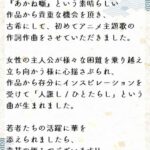 『あかね噺』という素晴らしい
作品から貴重な機会を頂き、
古希にして、初めてアニメ主題歌の
作詞作曲をさせていただきました。
女性の主人公が様々な困難を乗り越え
立ち向かう様に心揺さぶられ、
作品から存分にインスピレーションを
受けて「人誑し/ひとたらし」という
曲が生まれました。
若者たちの活躍に華を
添えられましたら、